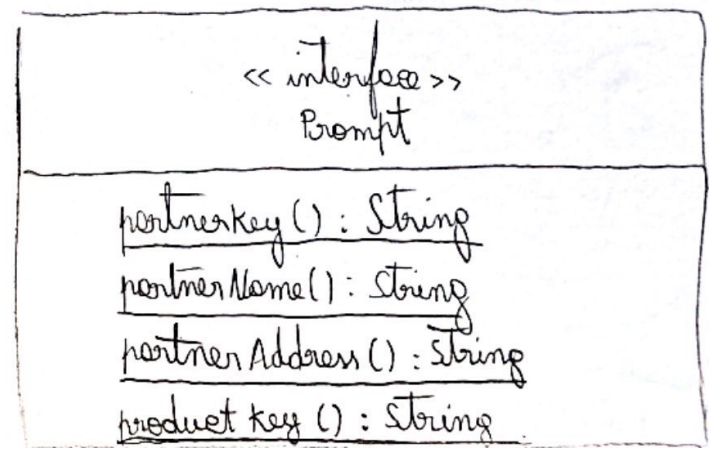 << interface >>
Prompt
partnerkey() : String
partnerName() : String
partnerAddress() : String
product key () : String